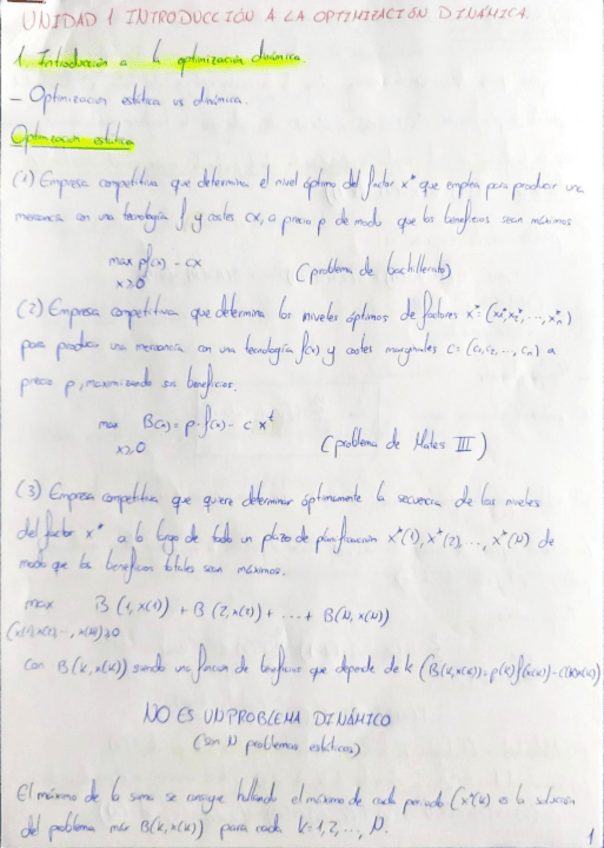 UNIDAD 1 INTRODUCCIÓN A LA OPTIMIZACIÓN DINÁMICA.
1. Introducción a la optimización dinámica.
- Optimización estática vs dinámica.
Optimización estática
(1) Empresa competitiva que determina el nivel óptimo del factor x* que emplea para producir una
mercancía con una tecnología f y costes cx, a precio p de modo que los beneficios sean máximos
max pf(x) - cx (problema de bachillerato)
x≥0
(2) Empresa competitiva que determina los niveles óptimos de factores x* = (x₁*, x₂*, ..., xₙ*)
para producir una mercancía con una tecnología f(x) y costes marginales c = (c₁, c₂, ..., cₙ) a
precio p, maximizando sus beneficios.
max B(x) = p · f(x) - c xᵗ
x≥0 (problema de Mates III)
(3) Empresa competitiva que quiere determinar óptimamente la secuencia de los niveles
del factor x* a lo largo de todo un plazo de planificación x*(1), x*(2), ..., x*(N) de
modo que los beneficios totales sean máximos.
max B(1, x(1)) + B(2, x(2)) + ... + B(N, x(N))
(x(1), x(2), ..., x(N))≥0
Con B(k, x(k)) siendo una función de beneficios que depende de k (B(k, x(k)) = p(k)f(x(k)) - c(k)x(k))
NO ES UN PROBLEMA DINÁMICO
(son N problemas estáticos)
El máximo de la suma se consigue hallando el máximo de cada periodo (x*(k) es la solución
del problema max B(k, x(k)) para cada k = 1, 2, ..., N.
1